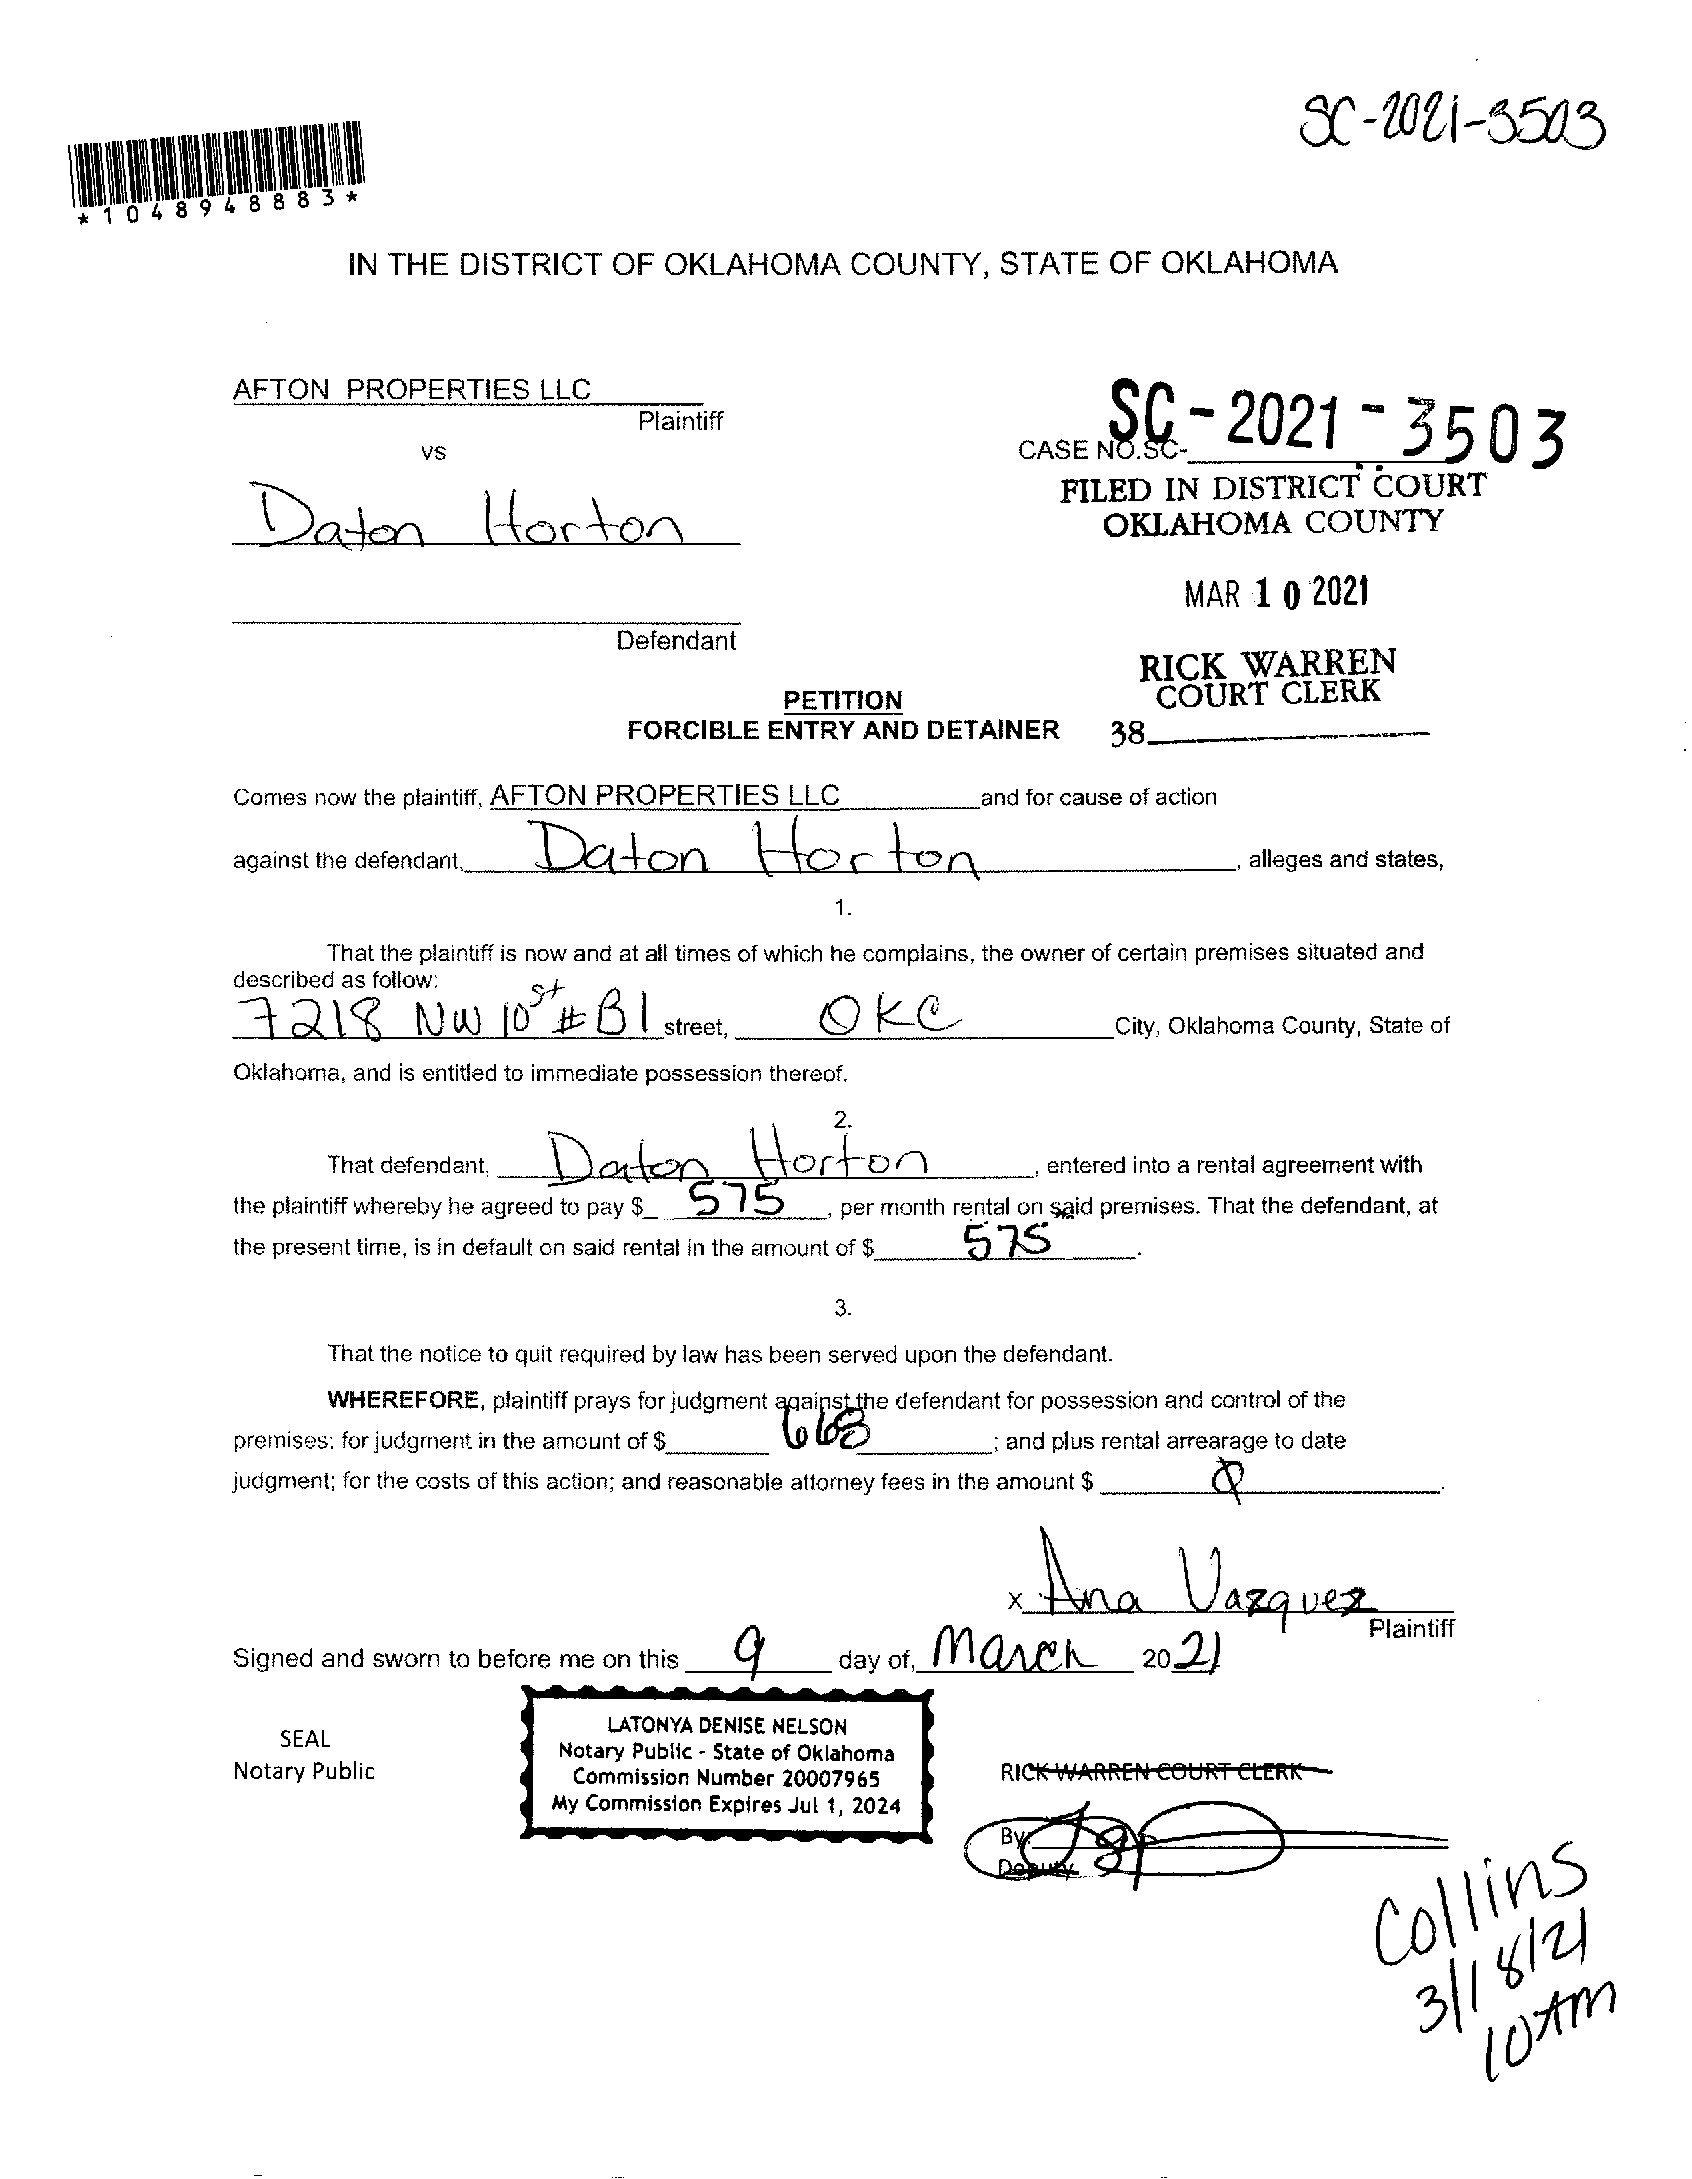 SC-2021-3503
*1048948883*
IN THE DISTRICT OF OKLAHOMA COUNTY, STATE OF OKLAHOMA
AFTON PROPERTIES LLC
Plaintiff
vs
CASE NO.SC- SC-2021-3503
FILED IN DISTRICT COURT
OKLAHOMA COUNTY
Daton Horton
MAR 10 2021
Defendant
RICK WARREN
COURT CLERK
PETITION
FORCIBLE ENTRY AND DETAINER
38
Comes now the plaintiff, AFTON PROPERTIES LLC and for cause of action
against the defendant, Daton Horton, alleges and states,
1.
That the plaintiff is now and at all times of which he complains, the owner of certain premises situated and
described as follow:
7218 NW 10st #B1 street, OKC City, Oklahoma County, State of
Oklahoma, and is entitled to immediate possession thereof.
2.
That defendant, Daton Horton, entered into a rental agreement with
the plaintiff whereby he agreed to pay $ 575, per month rental on said premises. That the defendant, at
the present time, is in default on said rental in the amount of $ 575.
3.
That the notice to quit required by law has been served upon the defendant.
WHEREFORE, plaintiff prays for judgment against the defendant for possession and control of the
premises; for judgment in the amount of $ 668; and plus rental arrearage to date
judgment; for the costs of this action; and reasonable attorney fees in the amount $ 0.
x Ana Vazquez
Plaintiff
Signed and sworn to before me on this 9 day of, March 2021
SEAL
Notary Public
LATONYA DENISE NELSON
Notary Public - State of Oklahoma
Commission Number 20007965
My Commission Expires Jul 1, 2024
RICK WARREN COURT CLERK
By:
Deputy
Collins
3/18/21
10AM